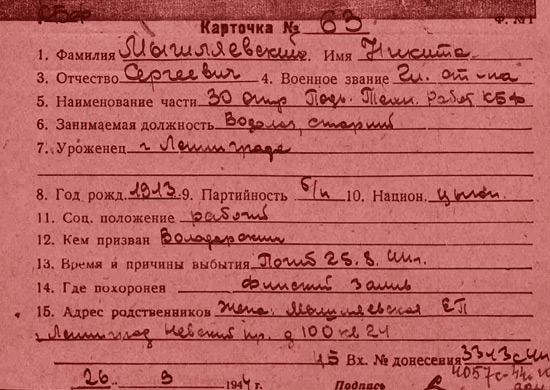 Карточка № 63 Ф. №1
1. Фамилия Мышляевский Имя Никита
3. Отчество Сергеевич 4. Военное звание Гл. ст-на
5. Наименование части 30 отр. Подв. Техн. Работ КБФ
6. Занимаемая должность Водолаз, старший
7. Уроженец г Ленинграда
8. Год рожд. 1913 9. Партийность б/п 10. Национ.
11. Соц. положение рабочий
12. Кем призван Володарским
13. Время и причины выбытия Погиб 25.8.44г.
14. Где похоронен Финский залив
15. Адрес родственников Жена: Мышляевская ЕП
г Ленинград Невский пр. д 100 кв 24
Вх. № донесения
26 9 1944 г Подпись